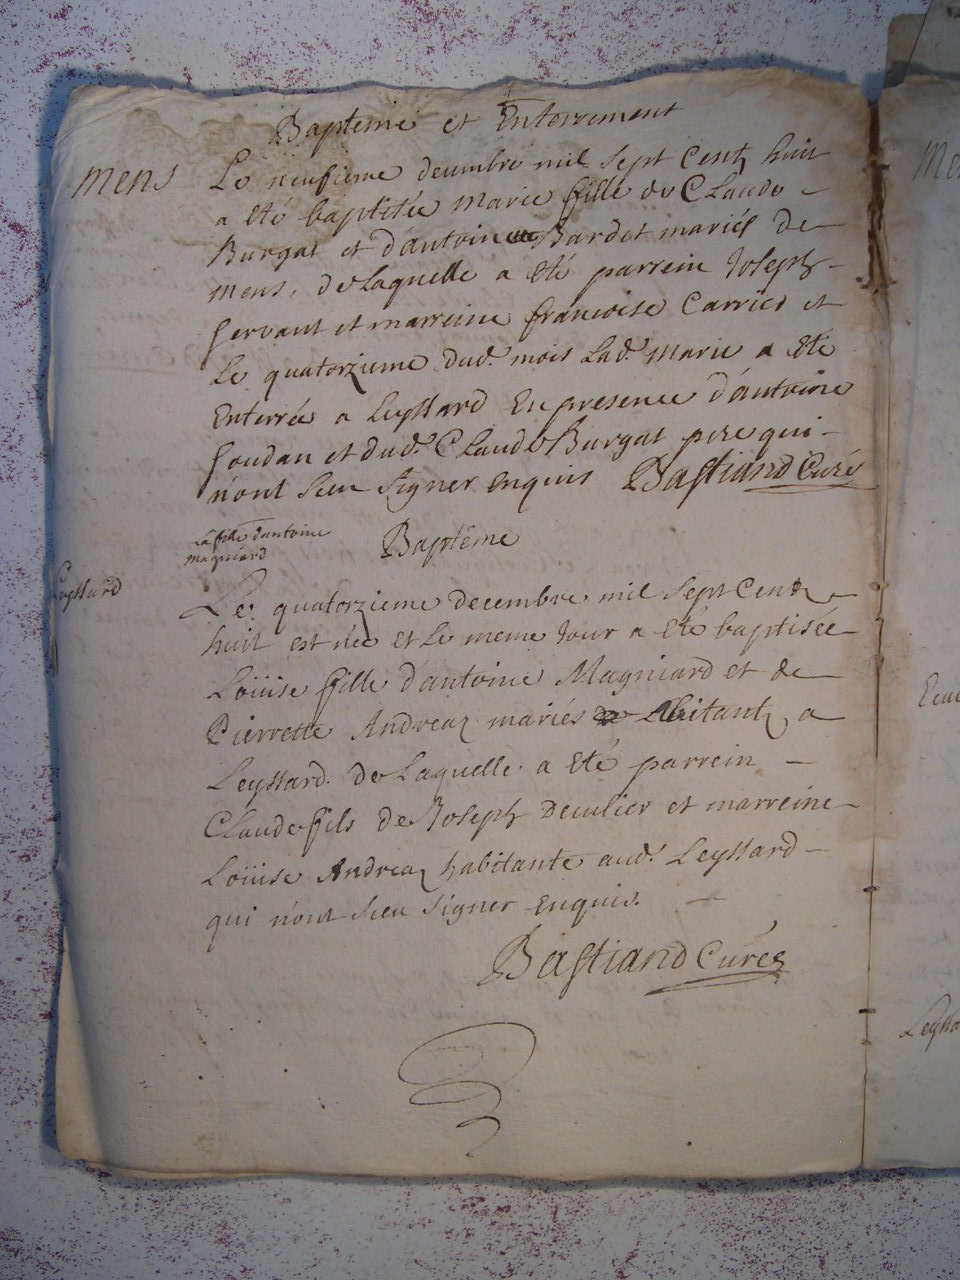 Bapteme et Enterrement
mens
Le neufieme decembre mil sept Centz huit
a eté baptisée Marie fille de Claude
Burgat et d'antoine Bardet mariés de
mens, de Laquelle a eté parrein Joseph
servant et marreine francoise Carrier et
Le quatorzieme dud. mois Lad. Marie a eté
Enterrée a Leyssard En presence d'antoine
Goudan et dud. Claude Burgat pere qui
n'ont sceu signer enquis Bastiand Curé
La fille d'antoine
Magniard
Baptême
Leyssard
Le quatorzieme decembre mil sept Centz
huit est née et Le meme Jour a eté baptisée
Loüise fille d'antoine Magniard et de
Pierrette Andreaz mariés habitantz a
Leyssard. de Laquelle a eté parrein
Claude fils de Joseph Decilier et marreine
Loüise Andreaz habitante aud. Leyssard
qui n'ont sceu signer Enquis.
Bastiand Curé
Men
Leyssa